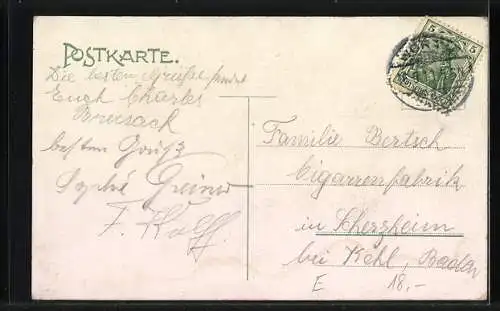 POSTKARTE.
Die besten Grüße sendet
Euch Charles
besten Gruß
Sophie
F. Kolff.
Familie Bertsch
Cigarrenfabrik
in Scherzheim
bei Kehl, Baden
E 18,-
5 5